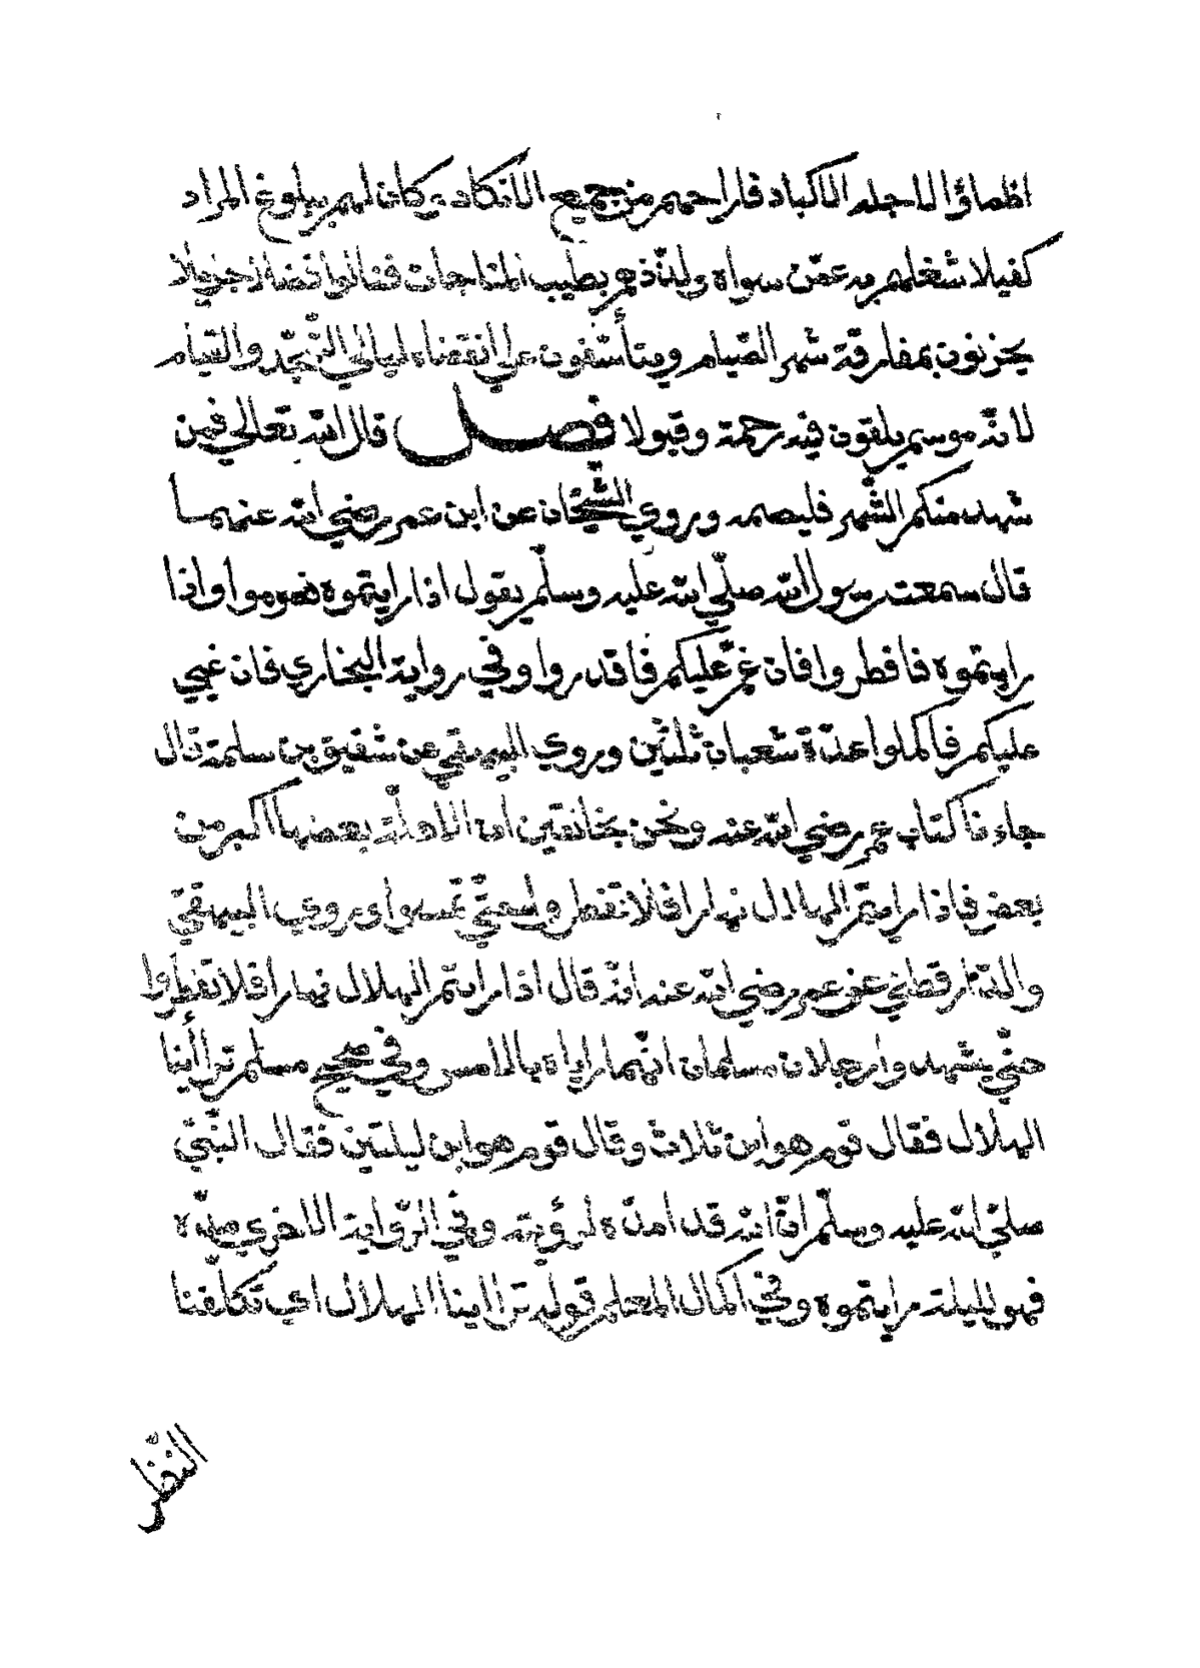 اظماؤا لاجله الاكباد فاراحهم من جميع الانكاد وكان لهم ببلوغ المراد
كفيلا شغلهم به عمّن سواه ولذّذهم بطيب المناجات فنالوا فضلا جزيلا
يحزنون بمفارقة شهر الصّيام ويتأسّفون على انقضاء ليالي التّهجّد والقيام
لانّه موسم يلقون فيه رحمة وقبولا فصل قال الله تعالى فمن
شهد منكم الشّهر فليصمه وروي الشّيخان عن ابن عمر رضي الله عنهما
قال سمعت رسول الله صلّي الله عليه وسلّم يقول اذا رايتموه فصوموا واذا
رايتموه فافطروا فان غمّ عليكم فاقدروا وفي رواية البخاري فان غبي
عليكم فاكملوا عدّة شعبان ثلثين وروي البيهقي عن شقيق بن سلمة قال
جاءنا كتاب عمر رضي الله عنه ونحن بخانقين ان الاهلّة بعضها اكبر من
بعض فاذا رايتم الهلال نهارا فلا تفطروا حتّي تمسوا وروي البيهقيّ
والدّارقطني عن عمر رضي الله عنه انّه قال اذا رايتم الهلال نهارا فلا تفطروا
حتّي يشهد رجلان مسلمان انّهما راياه بالامس وفي صحيح مسلم تراأينا
الهلال فقال قوم هو ابن ثلاث وقال قوم هو ابن ليلتين فقال النّبيّ
صلّي الله عليه وسلّم انّ الله قد امدّه لرؤيته وفي الرّواية الاخري مدّه
فهو لليلة رايتموه وفي اكمال المعلم قوله تراأينا الهلال اي تكلّفنا
النّظر